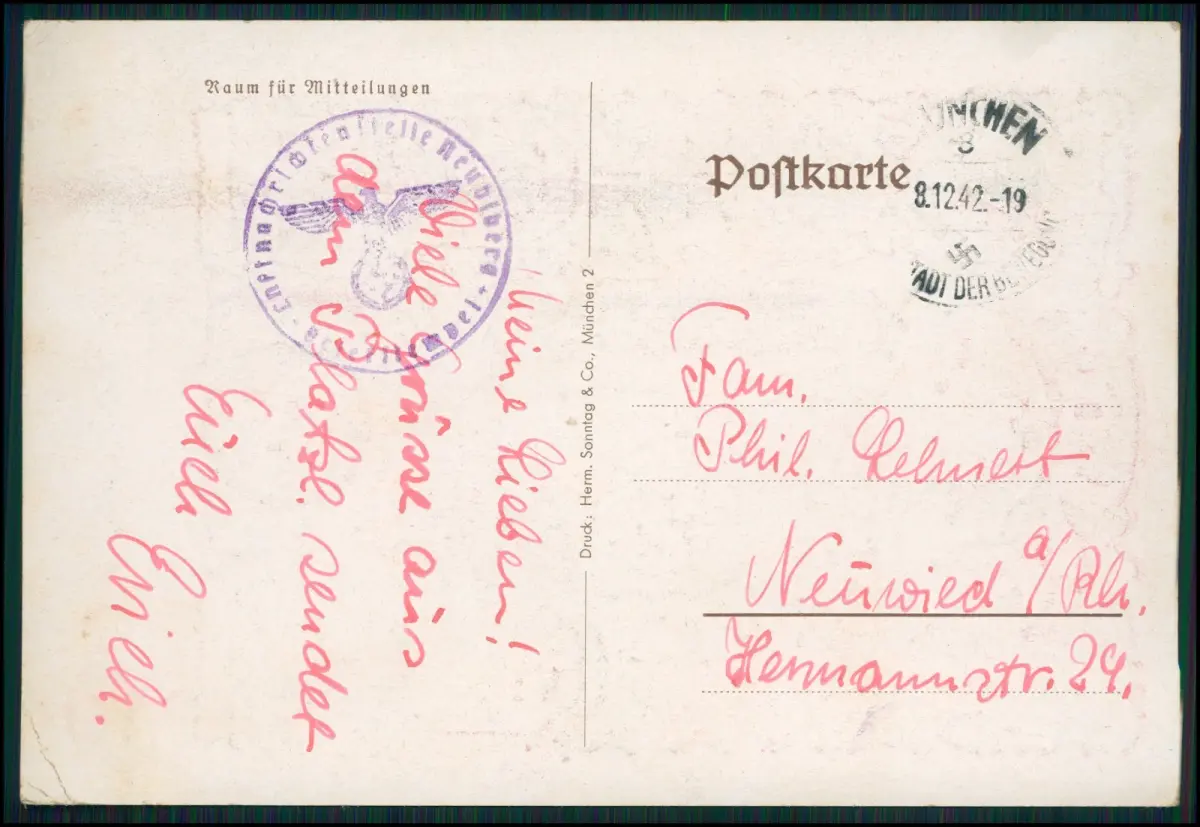 Raum für Mitteilungen
Luftnachrichtenstelle
Briefstempel
Meine Lieben!
Viele Grüsse aus
dem Platzl. sendet
Euch
Druck: Herm. Sonntag & Co., München 2
Postkarte
ÜNCHEN
8
8.12.42.-19
TADT DER BEWEGUN
Fam.
Phil. Lehnert
Neuwied a/Rh.
Hermannstr. 24.